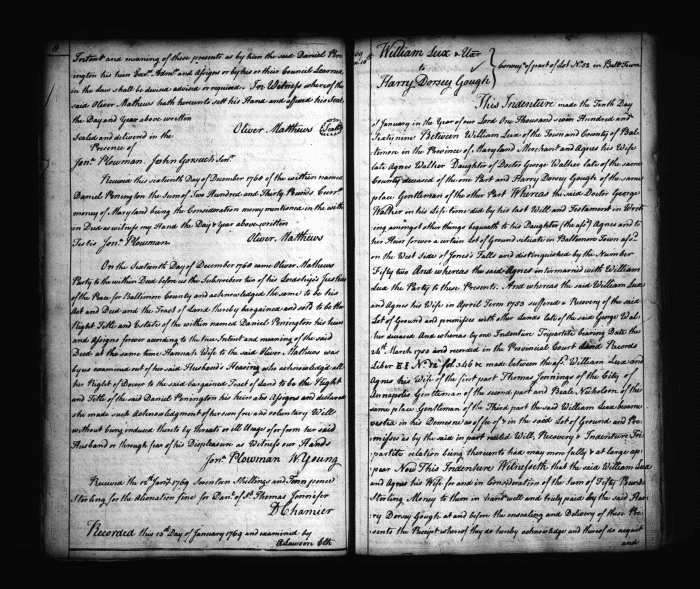 8
Intent and meaning of these presents as by him the said Daniel Pen-
ington his heirs Exrs. Admrs. and Assigns or by his or their Council Learned
in the Law shall be devised advised or required. In Witness whereof the
said Oliver Mathews hath hereunto set his Hand and affixed his Seal
the Day and Year above written
Sealed and delivered in the
Presence of
Oliver Matthews (Seal)
Jona. Plowman. John Gorsuch
Received this Sixteenth Day of December 1768 of the within named
Daniel Penington the Sum of Two Hundred and Thirty Pounds Curr.
money of Maryland being the Consideration money mentioned in the with-
in Deed as witness my Hand the Day & Year above written
Testis Jona. Plowman. Oliver Matthews
On the Sixteenth Day of December 1768 came Oliver Mathews
Party to the within Deed before us the Subscribers two of his Lordship's Justices
of the Peace for Baltimore County and acknowledged the same to be his
Act and Deed and the Tract of Land thereby bargained and sold to be the
Right Title and Estate of the within named Daniel Penington his heirs
and Assigns forever according to the true Intent and meaning of the said
Deed at the same time Hannah Wife to the said Oliver Mathews was
by us examined out of her said Husband's Hearing who acknowledg'd all
her Right of Dower to the said bargained Tract of Land to be the Right
and Title of the said Daniel Penington his heirs and Assigns and declared
she made such Acknowledgment of her own free and voluntary Will
without being induced thereto by threats or ill Usage of or from her said
Husband or through fear of his Displeasure as Witness our Hands
Jona. Plowman W. Young
Received the 12th Jany. 1769 Seventeen Shillings and Tenn pence
Sterling for the Alienation fine for Danl. of St. Thomas Jenifer
D Chamier
Recorded this 13th Day of January 1769 and examined by
A Lawson Clk
William Lux & Uxr
to
Harry Dorsey Gough
Convey. of part of Lot No. 52 in Balt. Town
This Indenture made the Tenth Day
of January in the Year of our Lord One Thousand seven Hundred and
Sixty nine Between William Lux of the Town and County of Bal-
timore in the Province of Maryland Merchant and Agnes his Wife
late Agnes Walker Daughter of Doctor George Walker late of the same
County deceased of the one Part and Harry Dorsey Gough of the same
place Gentleman of the other Part Whereas the said Doctor George
Walker in his Life time did by his last Will and Testament in Writ-
ing amongst other things bequeath to his Daughter (the afd.) Agnes and to
her Heirs forever a certain Lot of Ground situate in Baltimore Town afd.
on the West Side of Jones's Falls and distinguished by the Number
Fifty two And whereas the said Agnes intermarried with William
Lux the Party to these Presents. And whereas the said William Lux
and Agnes his Wife in April Term 1753 suffered a Recovery of the said
Lot of Ground and premises with other Lands late of the said George Wal-
ker deceased And whereas by one Indenture Tripartite bearing Date the
and recorded in the Provincial Court Land Records
made between the afd. William Lux and
Agnes his Wife of the first part Thomas Jennings of the City of
Annapolis Gentleman of the second part and Beale Nicholson of the
same place Gentleman of the Third part the said William Lux became
vested in his Demesne as of fee in the said Lot of Ground and Pre-
mises as by the said in part recited Will, Recovery & Indenture Tri-
partite relation being thereunto had may more fully & at large ap-
pear Now This Indenture Witnesseth that the said William Lux
and Agnes his Wife for and in Consideration of the Sum of Fifty Pounds
Sterling Money to them in hand well and truly paid by the said Har-
ry Dorsey Gough at and before the ensealing and Delivery of these Pre-
sents the Receipt whereof they do hereby acknowledge and thereof do acquit
and